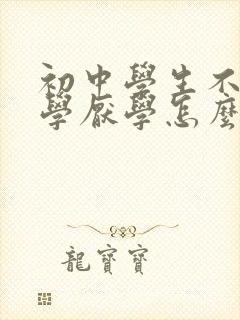 初中學生不
學厭學怎麼
龍寶寶